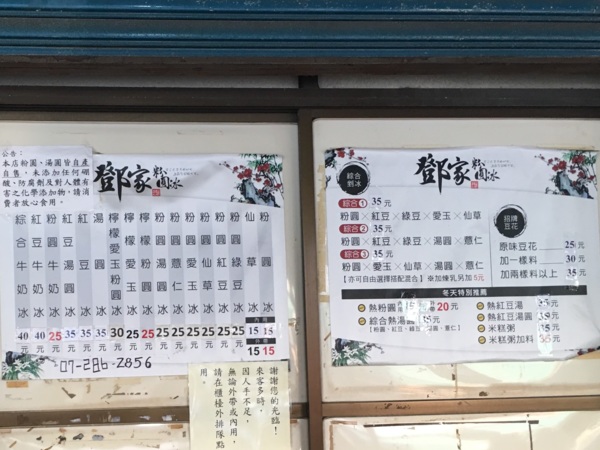 公告：
本店粉圓、湯圓皆自產
自售，未添加任何硼
酸、防腐劑及對人體有
害之化學添加物，請消
費者放心食用。
鄧家粉圓冰
綜合牛奶冰 40元
紅豆牛奶冰 40元
紅豆湯圓冰 35元
湯圓冰 35元
檸檬愛玉粉圓冰 30元
檸檬愛玉冰 25元
檸檬粉圓冰 25元
粉圓湯圓冰
粉圓薏仁冰 25元
粉圓愛玉冰 25元
粉圓仙草冰 25元
粉圓紅豆冰 25元
粉圓綠豆冰 25元
仙草冰 15 15
粉圓冰 15 15
07-286-2856
謝謝您的光臨！
來客多時，
因人手不足，
無論外帶或內用，
請在櫃檯外排隊點
用。
鄧家粉圓冰
綜合剉冰
綜合1 35元
粉圓×紅豆×綠豆×愛玉×仙草
綜合2 35元
粉圓×紅豆×綠豆×湯圓×薏仁
綜合3 35元
粉圓×愛玉×仙草×湯圓×薏仁
【亦可自由選擇搭配混合】※加煉乳另加5元
招牌豆花
原味豆花 25元
加一樣料 30元
加兩樣料以上 35元
冬天特別推薦
熱粉圓 20元
綜合熱湯圓
熱紅豆湯
熱紅豆湯圓
米糕粥
米糕粥加料